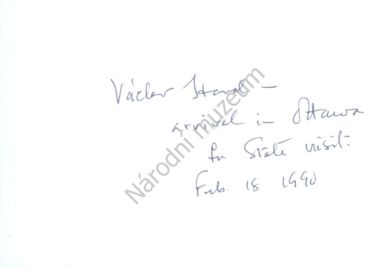 Václav Havel –
arrival in Ottawa
for State visit:
Feb 18 1990
Národní muzeum